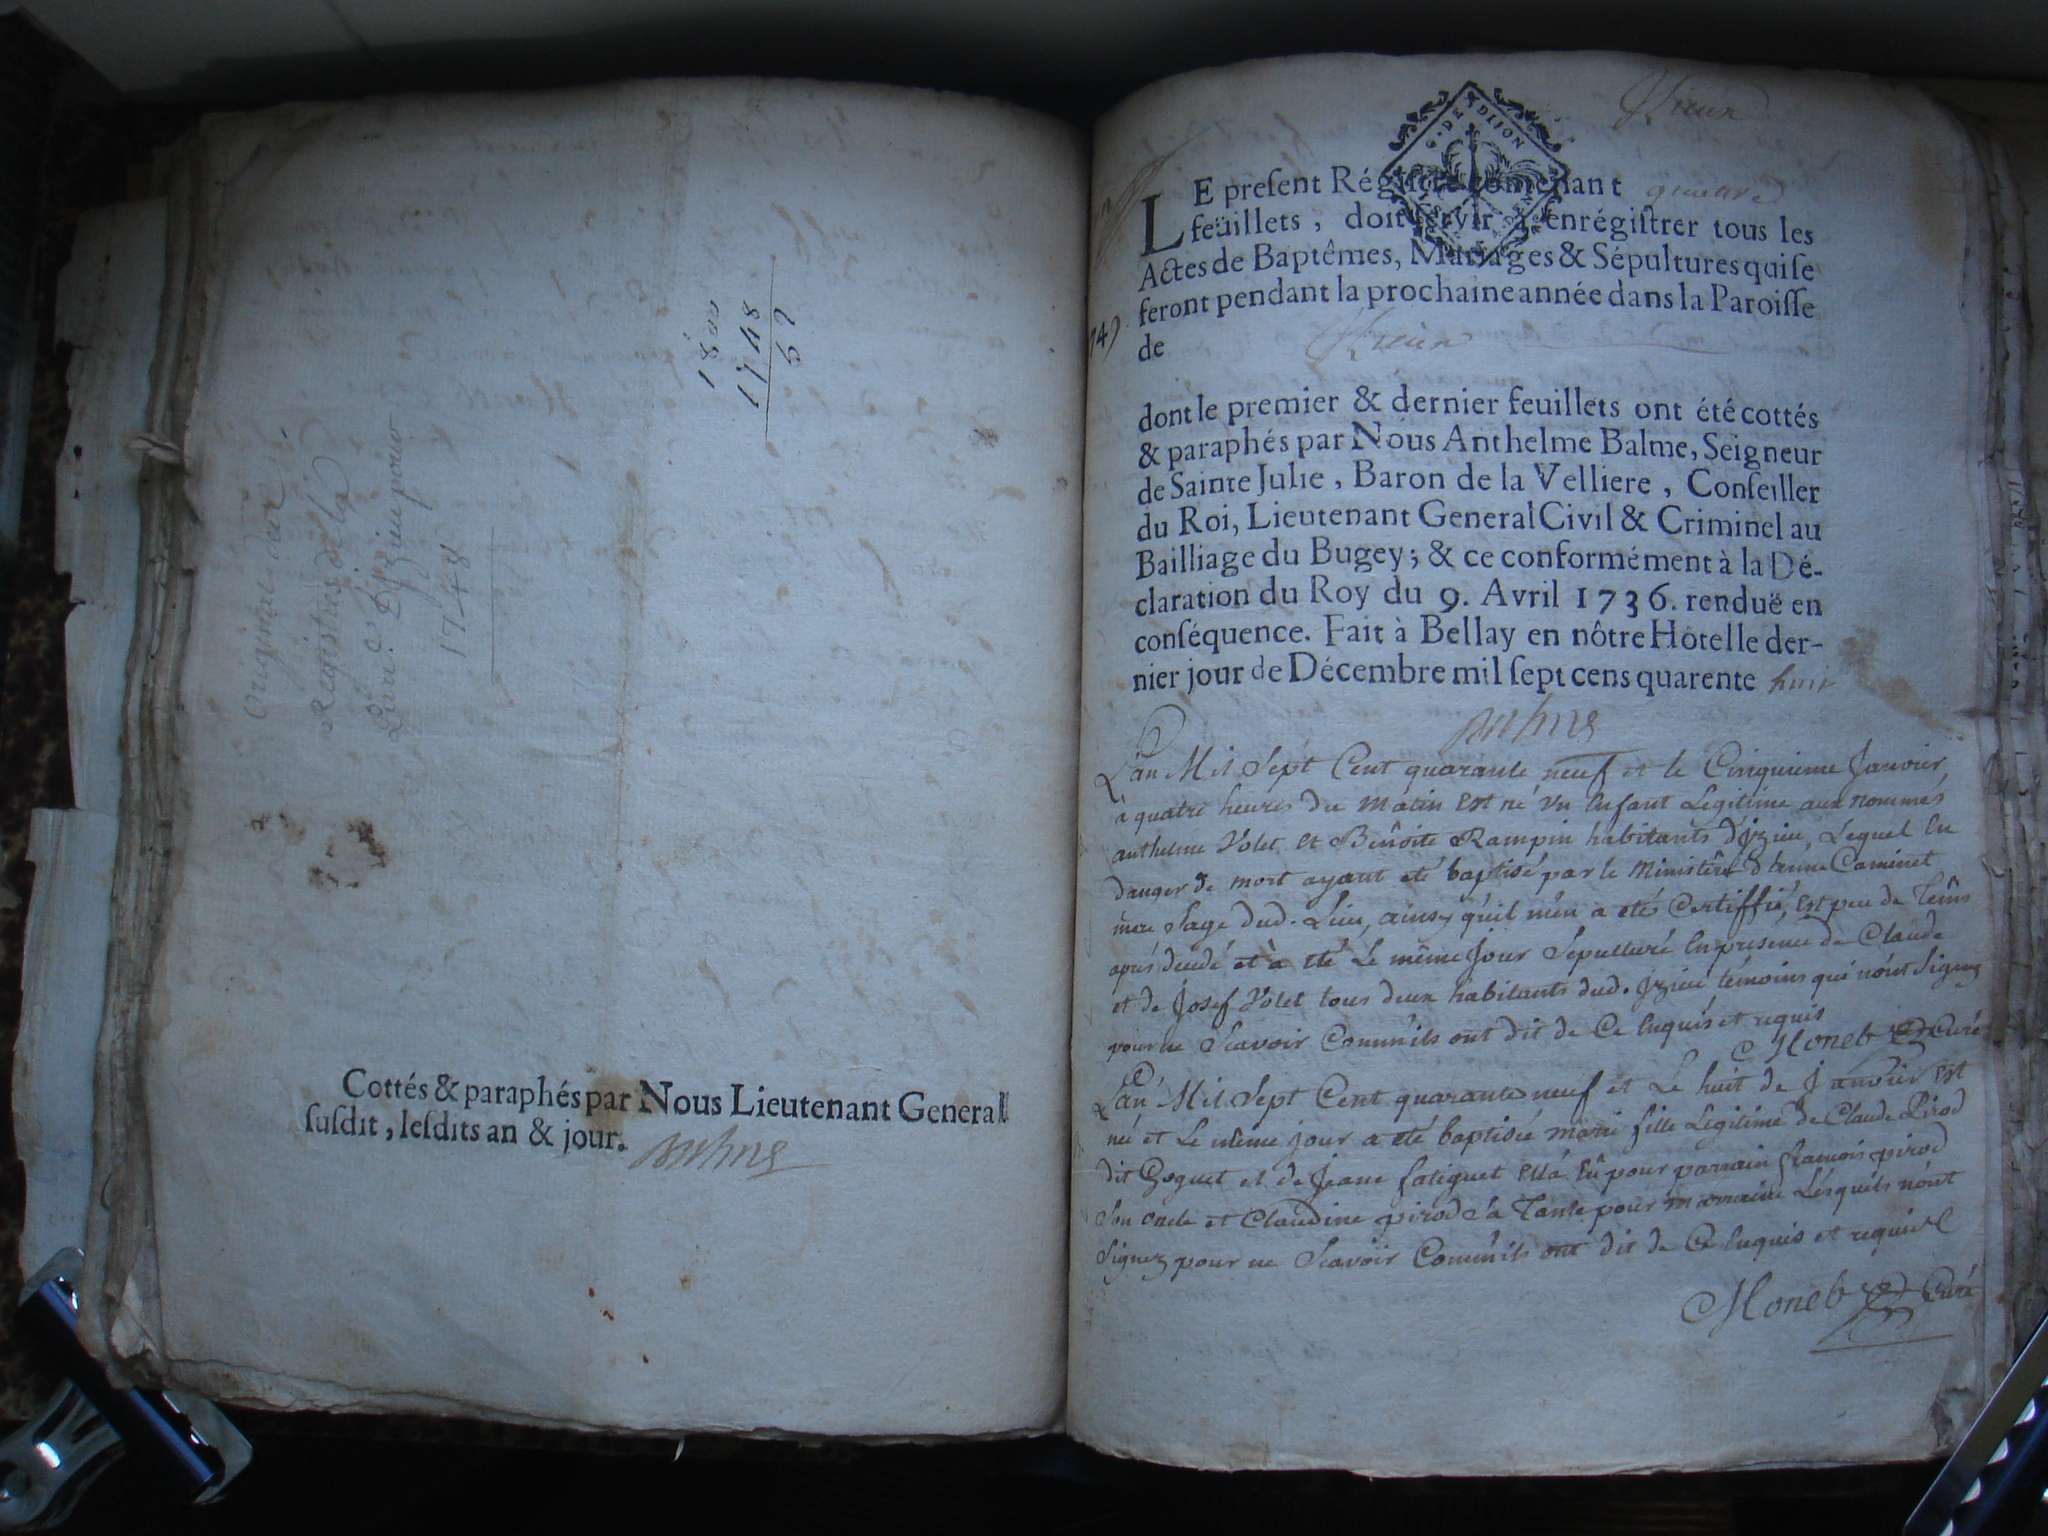 Original des
Registres de la
Paroi.e D'Izieu pour
1748
1800
1748
62
Cottés & paraphés par Nous Lieutenant General
ſuſdit, leſdits an & jour.
Izieu
G. DE DIJON
LE preſent Régiſtre contenant quatre
feüillets, doit ſervir à enrégiſtrer tous les
Actes de Baptêmes, Mariages & Sépultures qui ſe
feront pendant la prochaine année dans la Paroiſſe
de Izieu
dont le premier & dernier feuillets ont été cottés
& paraphés par Nous Anthelme Balme, Seigneur
de Sainte Julie, Baron de la Velliere, Conſeiller
du Roi, Lieutenant General Civil & Criminel au
Bailliage du Bugey; & ce conformément à la Dé-
claration du Roy du 9. Avril 1736. renduë en
conſéquence. Fait à Bellay en nôtre Hôtel le der-
nier jour de Décembre mil ſept cens quarente huit
L'an Mil Sept Cent quarante neuf et le Cinquieme Janvier,
à quatre heures du matin Est né vn Enfant Legitime aux nommés
anthelme Volet et Benôite Rampin habitants d'jzieu, Lequel En
danger de mort ayant eté baptisé par le Ministêre d'anne Caminet
mere Sage dud. Lieu, ainsy qu'il m'en a eté Certiffié, Est peu de Tems
aprés decedé et à eté Le même Jour Sepulturé En presence de Claude
et de Josef Volet tous deux habitants dud. jzieu témoins qui n'ont Signez
pour ne Scavoir Comm'ils ont dit de Ce Enquis et requis
Moneb Curé
L'an Mil Sept Cent quarante neuf et Le huit de Janvier Est
née et Le même jour a eté baptisée Marie fille Legitime de Claude Pirod
dit Goguet et de Jeane fatiguet Ella Eû pour parrain francois pirod
Son oncle et Claudine pirod Sa Tante pour marraine Lesquels n'ont
Signez pour ne Scavoir Comm'ils ont dit de Ce Enquis et requis
Moneb Curé